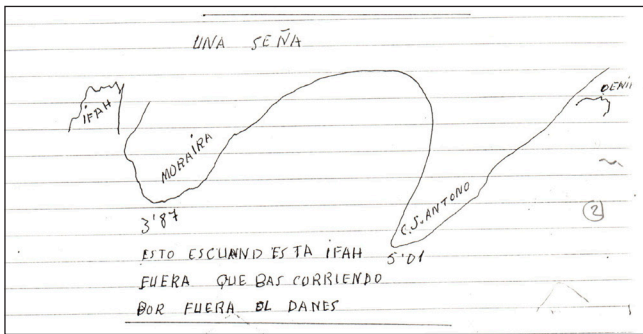 UNA SEÑA
IFAH
DENIA
MORAIRA
C.S. ANTONO
3'87
5'01
2
ESTO ESCUAND ESTA IFAH
FUERA QUE BAS CORRIENDO
POR FUERA DL DANES